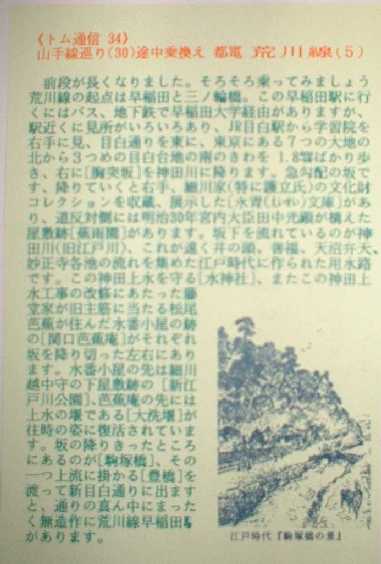 《トム通信 34》
山手線巡り(30)途中乗換え 都電 荒川線(5)
前段が長くなりました。そろそろ乗ってみましょう
荒川線の起点は早稲田と三ノ輪橋。この早稲田駅に行
くにはバス、地下鉄で早稲田大学経由がありますが、
駅近くに見所がいろいろあり、JR目白駅から学習院を
右手に見、目白通りを東に、東京にある7つの大地の
北から3つめの目白台地の南のきわを 1.8㌔ばかり歩
き、右に[胸突坂]を神田川に降ります。急勾配の坂で
す、降りていくと右手、細川家(特に護立氏)の文化財
コレクションを収蔵、展示した[永青(えいせい)文庫]があ
り、道反対側には明治30年宮内大臣田中光顕が構えた
屋敷跡[蕉雨園]があります。坂下を流れているのが神
田川(旧江戸川)、これが遠く井の頭、善福、天沼弁天、
妙正寺各池の流れを集めた江戸時代に作られた用水路
です。この神田上水を守る[水神社]、またこの神田上
水工事の改修にあたった藤
堂家が旧主筋に当たる松尾
芭蕉が住んだ水番小屋の跡
の[関口芭蕉庵]がそれぞれ
坂を降り切った左右にあり
ます。水番小屋の先は細川
越中守の下屋敷跡の[新江
戸川公園]、芭蕉庵の先には
上水の堰である[大洗堰]が
往時の姿に復活されていま
す。坂の降りきったところ
にあるのが[駒塚橋]、その
一つ上流に掛かる[豊橋]を
渡って新目白通りに出ます
と、通りの真ん中にまった
く無造作に荒川線早稲田駅
があります。
江戸時代『駒塚橋の景』